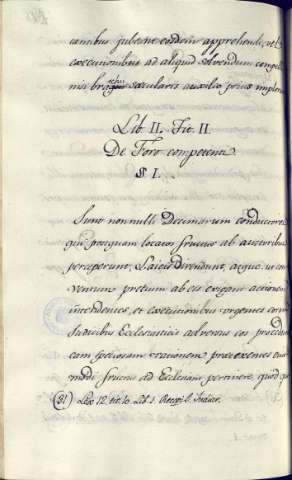 canibus jubente eosdem apprehendi, vel
executionibus ad aliquid solvendum compell
nisi brachii sæcularis auxilio prius implor
Lib. II. Tit. II.
De Foro competenti
§ I.
Sunt nonnulli Decimarum conductores
qui postquam locatos fructus ab auctoribus
perceperunt, Laicis divendunt, atque ut con
ventum pretium ab eis exigant actionem
intendentes, et executionibus urgentes coram
Judicibus Ecclesiasticis adversus eos procedunt
eam speciosam rationem prætexentes eius
modi fructus ad Ecclesiam pertinere, quod qu
(31) Lex 12 tit. 10. Lib. 1. Recopil. Indiar.